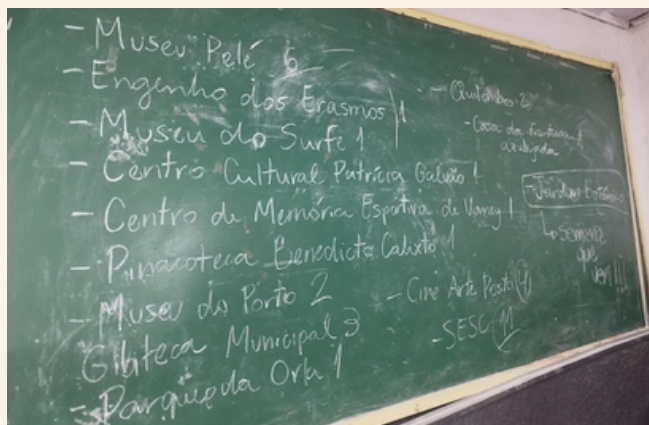 - Museu Pelé 6
- Engenho dos Erasmos 1
- Museu do Surfe 1
- Centro Cultural Patrícia Galvão 1
- Centro de Memória Esportiva de Vaney 1
- Pinacoteca Benedicto Calixto 1
- Museu do Porto 2
Gibiteca Municipal 3
- Parque da Orla 1
- Quilombos 2
- Casa da frontaria 1
azulejada
- Jardim Botânico
↳ semana
que
vem!!!
- Cine Arte Posto 4
- SESC 11